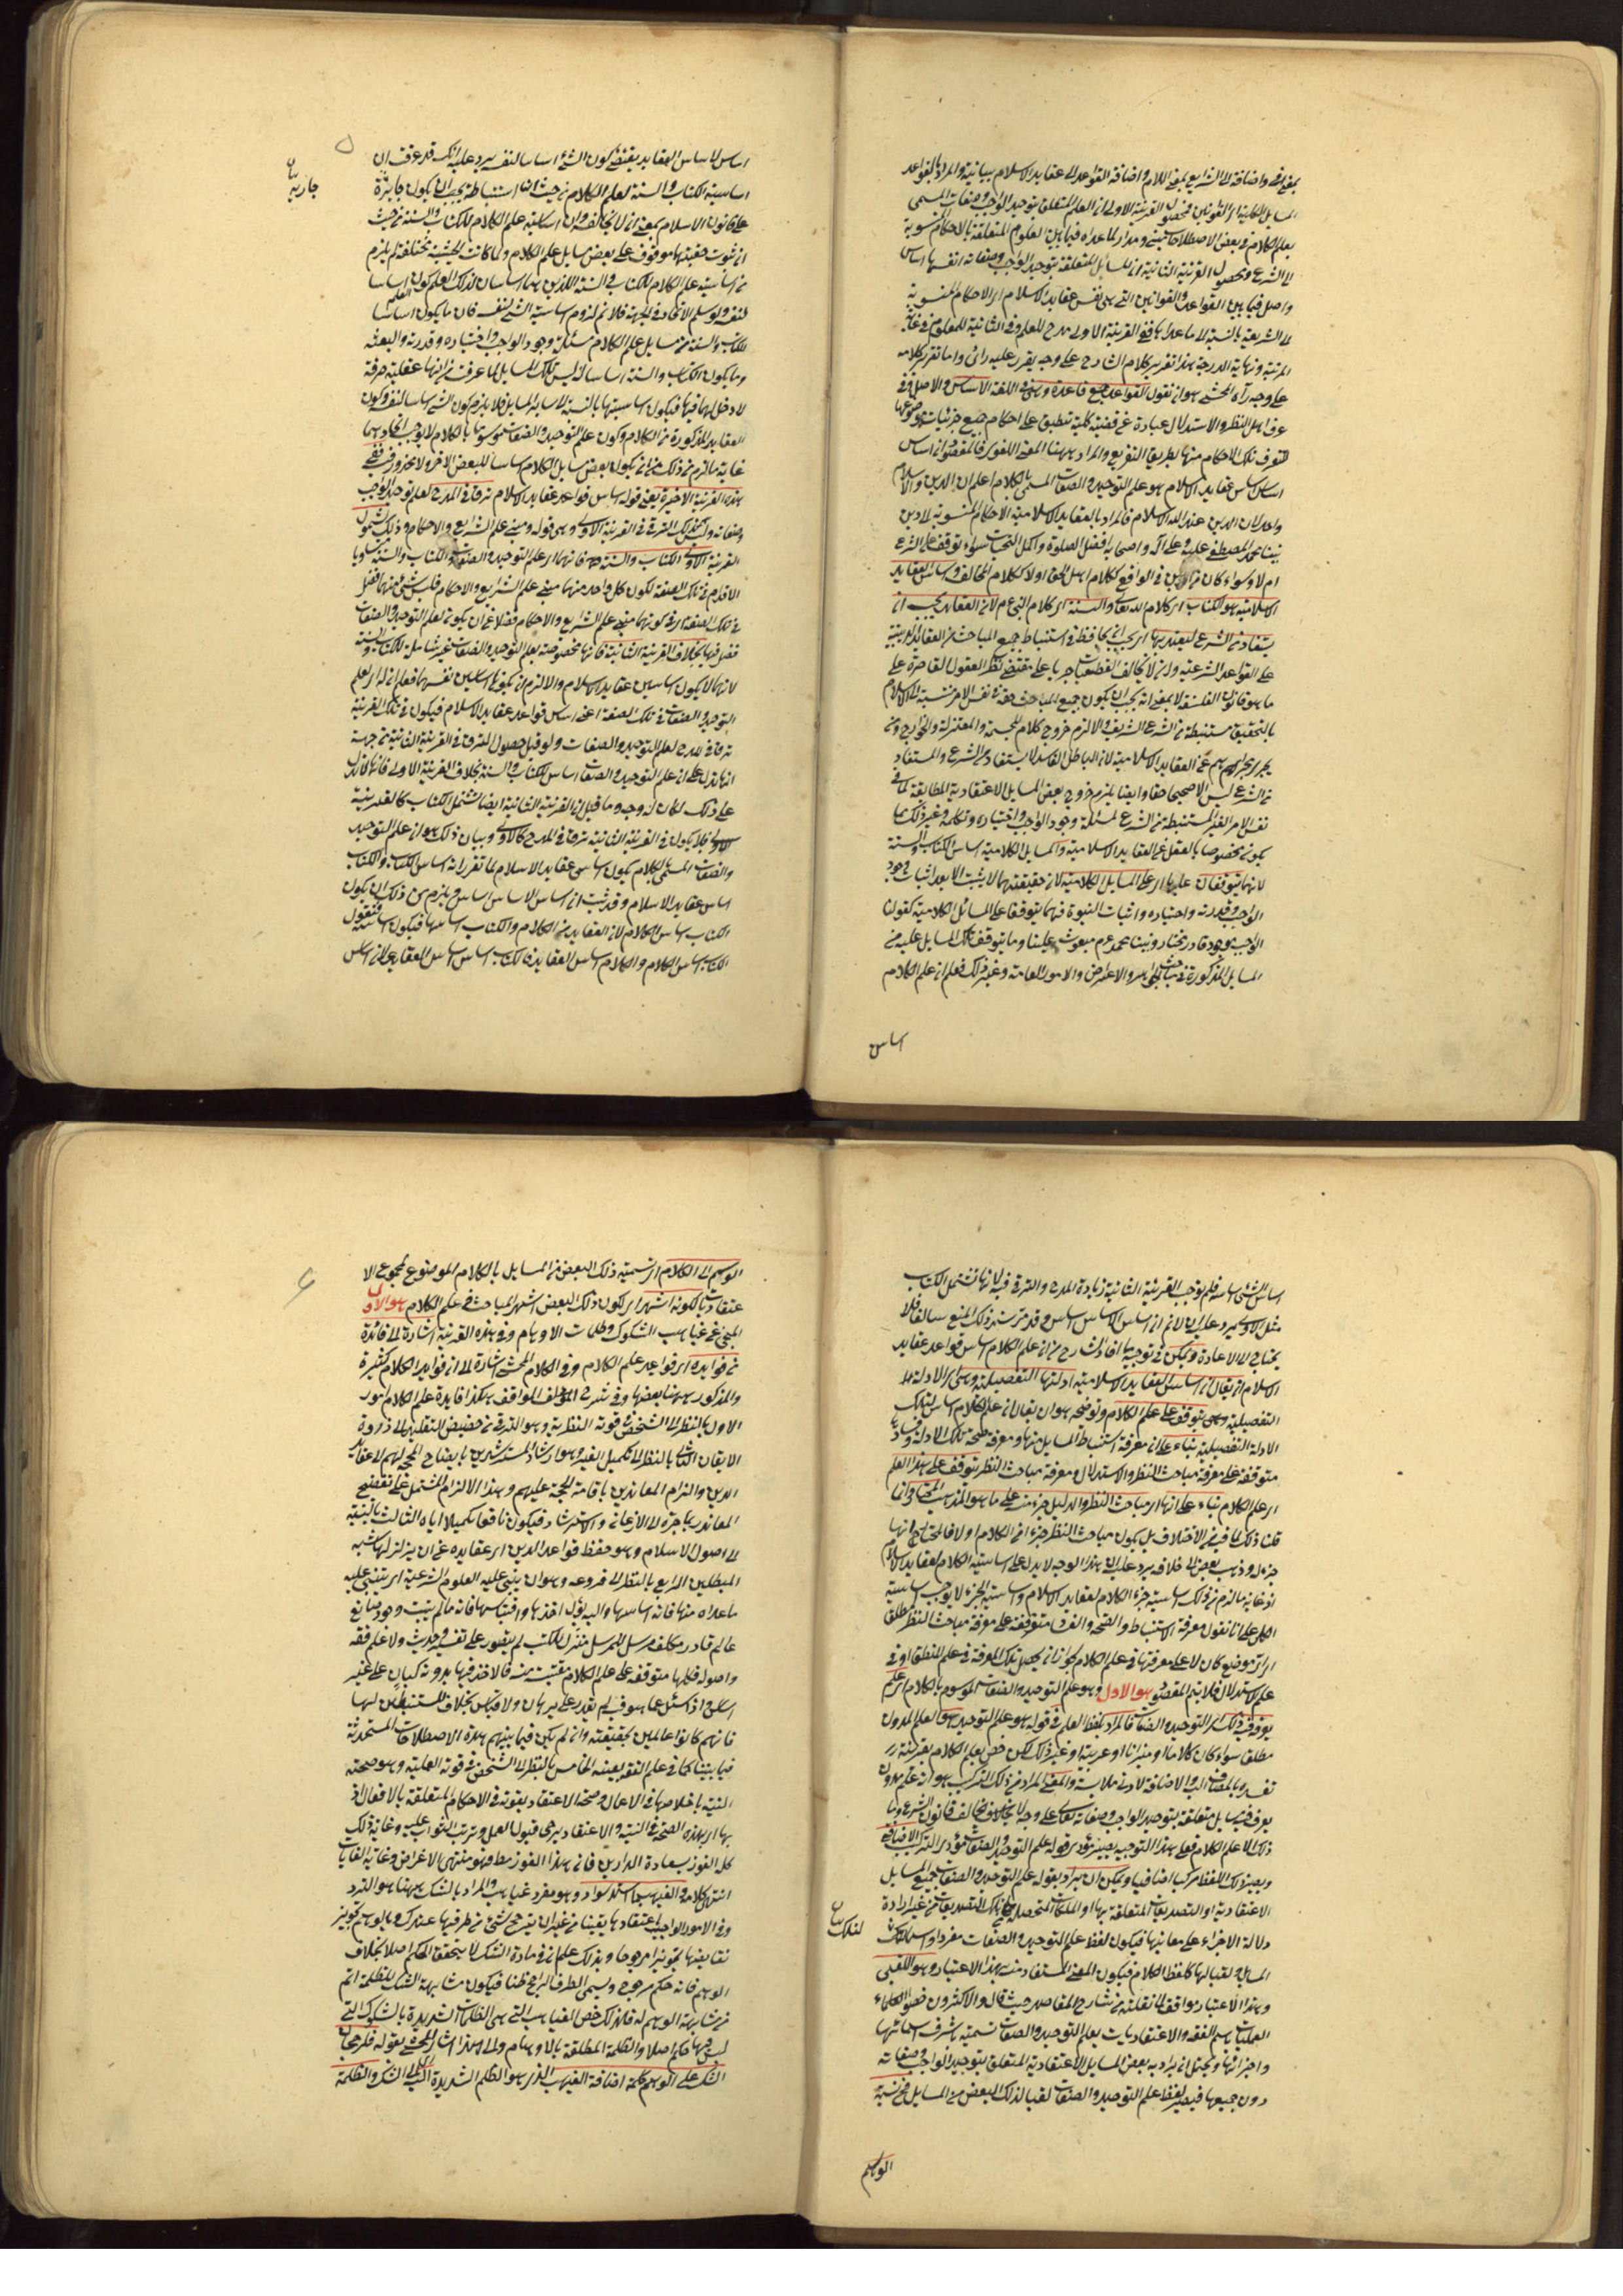 بمعنى في واضافة الى الشرايع بمعنى اللام واضافة القواعد الى عقايد الاسلام بيانية والمراد بالقواعد
المسايل الكلية او القوانين فمحصول القرينة الاولى ان العلم المتعلق بتوحيد الواجب وصفاته المسمى
بعلم الكلام في بعض الاصطلاحات مبنى ومدار لما عداه فيما بين العلوم المتعلقة بالاحكام المنسوبة
الى الشرع ومحصول القرينة الثانية ان المسايل المتعلقة بتوحيد الواجب وصفاته انفسها اساس
واصل فيما بين القواعد والقوانين التي هي نفس عقايد الاسلام اي الاحكام المنسوبة
الى الشريعة بالنسبة الى ما عداها ففي القرينة الاولى مدح للعلم وفي الثانية للمعلوم في غاية
المرتبة ونهاية الدرجة هذا تقرير كلام الشارح على وجه يقرر عليه رائى واما تقرير كلامه
على وجه رآه المحشى هو ان نقول القواعد جمع قاعدة وهي في اللغة الاساس والاصل وفي
عرف اهل النظر والاستدلال عبارة عن قضية كلية تنطبق على احكام جميع جزئيات موضوعها
لتتعرف تلك الاحكام منها بطريق التفريع والمراد ههنا المعنى اللغوى فالمقصود ان اساس
اساس عقايد الاسلام هو علم التوحيد والصفات المسمى بالكلام اعلم ان الدين والاسلام
واحد لان الدين عند الله الاسلام فالمراد بالعقايد الاسلامية الاحكام المنسوبة الى دين
نبينا محمد المصطفى عليه وعلى آله واصحابه افضل الصلوة واكمل التحيات سواء توقف على الشرع
ام لا وسواء كان من الدين في الواقع ككلام اهل الحق اولا ككلام المخالف واساس العقايد
الاسلامية هو الكتاب اي كلام الله تعالى والسنة اي كلام النبي عم لان العقايد يجب ان
يستفاد من الشرع ليعتد بها اي يجب ان يحافظ في استنباط جميع المباحث من العقايد الدينية
على القواعد الشرعية وان لا يخالف القطعيات جريا على مقتضى نظر العقول القاصرة على
ما هو قانون الفلسفة لا بمعنى انه يجب ان يكون جميع المباحث حقة في نفس الامر منتسبة الى الاسلام
بالتحقيق مستنبطة من الشرع الشريف والا لزم خروج كلام المجسمة والمعتزلة والخوارج ومن
يجرى مجراهم عن العقايد الاسلامية لان الباطل الفاسد لا يستفاد من الشرع والمستفاد
من الشرع ليس الا صحيحا حقا وايضا يلزم خروج بعض المسايل الاعتقادية المطابقة لما في
نفس الامر الغير المستنبطة من الشرع لمسئلة وجود الواجب واختياره وتكلمه وغير ذلك مما
يكون مخصوصا بالعقل عن العقايد الاسلامية والمسايل الكلامية اساس الكتاب والسنة
لانهما يتوقفان عليها اي على المسايل الكلامية لان حقيقتهما لا يثبت الا بعد اثبات وجود
الواجب وقدرته واختياره واثبات النبوة فهما يتوقفا على المسائل الكلامية كقولنا
الواجب موجود قادر مختار ونبينا محمد عم مبعوث علينا وما يتوقف تلك المسايل عليه من
المسايل المذكورة في مباحث الجواهر والاعراض والامور العامة وغير ذلك فعلم ان علم الكلام
اساس
اساس لاساس العقايد يقتضى كون الشئ اساسا لنفسه يرد عليه انك قد عرفت ان
اساسية الكتاب والسنة لعلم الكلام من حيث ان استنباطه يجب ان يكون جايزة
جارية
على قانون الاسلام بمعنى ان لا يخالفه وان اساسية علم الكلام للكتاب والسنة من حيث
ان ثبوت حقيتها موقوف على بعض مسايل علم الكلام ولما كانت الحيثية مختلفة لم يلزم
من اساسية علم الكلام للكتاب والسنة اللذين هما اساسان لذلك العلم كون العلم اساسا
لنفسه ولو سلم الاتحاد في الجهة فلا نم لزوم اساسية الشئ لنفسه فان ما يكون اساسا
للكتاب والسنة من مسايل علم الكلام مسئلة وجود الواجب واختياره وقدرته والبعثه
وما يكون الكتاب والسنة اساسا له ليس تلك المسايل لما عرفت من انها عقلية صرفة
لا دخل لهما فيها فيكون اساسيتهما بالنسبة الى ساير المسايل فلا يلزم كون الشئ اساسا لنفسه وكون
العقايد المذكورة من الكلام وكون علم التوحيد والصفات موسوما بالكلام لا يوجب اتحادهما
غاية ما لزم من ذلك هو ان يكون بعض مسايل الكلام اساسا للبعض الاخر ولا محذور فيه ففي
هذه القرينة الاخيرة يعنى قوله اساس قواعد عقايد الاسلام ترقى في المدح لعلم توحيد الواجب
وصفاته وليس كذلك الترقى في القرينة الاولى وهي قوله ومبنى علم الشرايع والاحكام وذلك لشمول
القرينة الاولى الكتاب والسنة فانهما اي علم التوحيد والصفات والكتاب والسنة متساويا
الاقدام في تلك الصفة لكون كل واحد منهما مبنى علم الشرايع والاحكام فليس شئ منهما افضل
في تلك الصفة اي في كونهما مبنى علم الشرايع والاحكام فضلا عن ان يكون لعلم التوحيد والصفات
فضل فيها بخلاف القرينة الثانية فانها مخصوصة بعلم التوحيد والصفات غير شاملة للكتاب والسنة
لانهما لا يكون اساسين عقايد الاسلام والا لزم ان يكونا اساسين لنفسهما فعلم ان لا اي لعلم
التوحيد والصفات في تلك الصفة اعنى اساس قواعد عقايد الاسلام فيكون في تلك القرينة
ترقى في المدح لعلم التوحيد والصفات ولو قيل حصول الترقى في القرينة الثانية من جهة
انها تدل على ان علم التوحيد والصفات اساس الكتاب والسنة بخلاف القرينة الاولى فانها لا تدل
على ذلك لكان له وجه وما قيل ان القرينة الثانية ايضا تشتمل الكتاب كالقرينة
الاولى فلا يكون في القرينة الثانية ترقى في المدح كالاولى وبيان ذلك هو ان علم التوحيد
والصفات المسمى بالكلام يكون اساس عقايد الاسلام لما تقرر انه اساس الكتاب والكتاب
اساس عقايد الاسلام وقد ثبت ان اساس الاساس اساس ويلزم من ذلك ان يكون
الكتاب اساس الكلام لان العقايد من الكلام والكتاب اساسها فيكون اساسه فنقول
الكتاب اساس الكلام والكلام اساس العقايد فالكتاب اساس اساس العقايد على ان اساس
اساس الشئ اساسه فلم يوجب القرينة الثانية زيادة المدح والترقى فيه لانها تشتمل الكتاب
مثل الاولى يرد عليه انا لا نم ان اساس الاساس اساس وقد مر سند ذلك المنع سالفا فلا
يحتاج الى الاعادة ويمكن في توجيه ما افاد الشارح من ان علم الكلام اساس قواعد عقايد
الاسلام ان يقال ان اساس العقايد الاسلامية ادلتها التفصيلية وهي اي الادلة
التفصيلية وهي يتوقف على علم الكلام وتوضيحه هو ان يقال ان علم الكلام اساس لتلك
الادلة التفصيلية بناء على ان معرفة استنباط المسايل منها ومعرفة صحة تلك الادلة وفسادها
متوقفة على معرفة مباحث النظر والاستدلال ومعرفة مباحث النظر يتوقف على هذا العلم
اي علم الكلام بناء على انها اي مباحث النظر والدليل جزء منه على ما هو المذهب المختار وانما
قلنا ذلك لما فيه من الاختلاف بل يكون مباحث النظر جزءا من الكلام اولا فالمختار انها
جزء له وذهب بعض الى خلافه يرد عليه ان هذا الوجه لا يدل على اساسية الكلام لعقايد الاسلام
اذ غاية ما لزم من ذلك اساسية جزء الكلام لعقايد الاسلام واساسية الجزء لا يوجب اساسية
الكل على انا نقول معرفة الاستنباط والصحة والفساد متوقفة على معرفة مباحث النظر مطلقا
اي اى موضع كان لا على معرفتها في علم الكلام لجواز ان يحصل تلك المعرفة في علم المنطق او في
علم الاستدلال فلا يتم المقصود هو الاول وهو علم التوحيد والصفات الموسوم بالكلام اي علم
يعرف فيه ذلك اي التوحيد والصفات فالمراد بلفظ العلم في قوله هو علم التوحيد هو العلم المدون
مطلق سواء كان كلاما او ميزانا او عربية او غير ذلك لكن خص بعلم الكلام بقرينة
تقييده بالمضاف اليه والاضافة لادنى ملابسة والمعنى المراد من ذلك التركيب هو انه علم مدون
يعرف فيه مسايل متعلقة بتوحيد الواجب وصفاته تعالى على وجه لا يخالف قانون الشرع وما
ذلك الا علم الكلام فعلى هذا التوجيه يصير مؤدى قوله علم التوحيد والصفات مؤدى التركيب الاضافى
ويصير ذلك اللفظ مركبا اضافيا ويمكن ان يراد بقوله علم التوحيد والصفات جميع المسايل
الاعتقادية او التصديقات المتعلقة بها او الملكات المتحصلة من تلك التصديقات من غير ارادة
دلالة الاجزاء على معانيها فيكون لفظ علم التوحيد والصفات مفردا واسما لتلك
لتلك
المسايل ولقبا لها كلفظ الكلام فيكون المعنى المستفاد منه بهذا الاعتبار وهو اللقبى
وهذا الاعتبار موافق لما نقلته من شارح المقاصد حيث قال والاكثرون خصوا العلماء
العمليات باسم الفقه والاعتقاديات بعلم التوحيد والصفات تسمية باشرف اسمائها
واجزائها ويحتمل ان يراد به بعض المسايل الاعتقادية المتعلق بتوحيد الواجب وصفاته
دون جميعها فيصير لفظ علم التوحيد والصفات لقبا لذلك البعض من المسايل فح نسبة
الوسم
الوسم الى الكلام اي تسمية ذلك البعض من المسايل بالكلام الموضوع لمجموع الا
عتقاديات لكونه اشهر اي لكون ذلك البعض اشهر المباحث في علم الكلام هو الاول
المنجى عن غياهب الشكوك وظلمات الاوهام وفي هذه القرينة اشارة الى فائدة
من فوايده اي فوايد علم الكلام وفي الكلام المحشى اشارة الى ان فوايد الكلام كثيرة
والمذكور ههنا بعضها وفي شرح المواقف هكذا فايدة علم الكلام امور
الاول بالنظر الى الشخص في قوته النظرية وهو الترقى من حضيض التقليد الى ذروة
الايقان الثاني بالنظر الى تكميل الغير وهو ارشاد المسترشدين بايضاح المحجة لهم الى عقايد
الدين والزام المعاندين باقامة الحجة عليهم وهذا الالزام المشتمل على تفضيح
المعاند ربما جره الى الاذعان والاسترشاد فيكون نافعا تكميلا اياه الثالث بالنسبة
الى اصول الاسلام وهو حفظ قواعد الدين اي عقايده عن ان يزلزلها شبه
المبطلين الرابع بالنظر الى فروعه وهو ان يبتنى عليه العلوم الشرعية اي يبتنى عليه
ما عداه منها فانه اساسها واليه يؤل اخذها واقتباسها فانه ما لم يثبت وجود صانع
عالم قادر مكلف مرسل للرسل منزل للكتب لم يتصور علم تفسير وحديث ولا علم فقه
واصوله فكلها متوقفة على علم الكلام مقتبسة منه فالاخذ فيها بدونه كبان على غير
اساس واذ سئل عما هو فيه لم يقدر على برهان ولا قياس بخلاف المستنبطين لها
فانهم كانوا عالمين بحقيقته وان لم يكن فيما بينهم هذه الاصطلاحات المستحدثة
فيما بيننا كما في علم الفقه بعينه الخامس بالنظر الى الشخص في قوته العملية وهو صحة
النية باخلاصها في الاعمال وصحة الاعتقاد بقوته في الاحكام المتعلقة بالافعال اذ
بها اي بهذه الصحة في النية والاعتقاد يرجى قبول العمل وترتب الثواب عليه وغاية ذلك
كله الفوز بسعادة الدارين فان هذا الفوز مط فهو منتهى الاغراض وغاية الغايات
انتهى كلامه والغيهب ما اشتد سواده وهو مفرد غياهب والمراد بالشك ههنا هو التردد
وفي الامور الواجب اعتقادها يقينا من غير ان يترجح شئ من طرفيها عندك وبالوهم تجويز
نقايضها تجويزا مرجوحا وبذلك علم ان في مادة الشك لا يتحقق الحكم اصلا بخلاف
الوهم فانه حكم مرجوح ويسمى الطرف الراجح ظنا فيكون مشابهة الشك للظلمة اتم
من مشابهة الوهم له فلذلك خص الغياهب التي هي الظلمات الشديدة بالشكوك التي
ليس فيها حكم اصلا والظلمة المطلقة بالاوهام والى هذا اشار المحشى بقوله فلرجحان
الشك على الوهم كلمة اضافة الغيهب الذي هو الظلم الشديدة الى الشك والظلمة